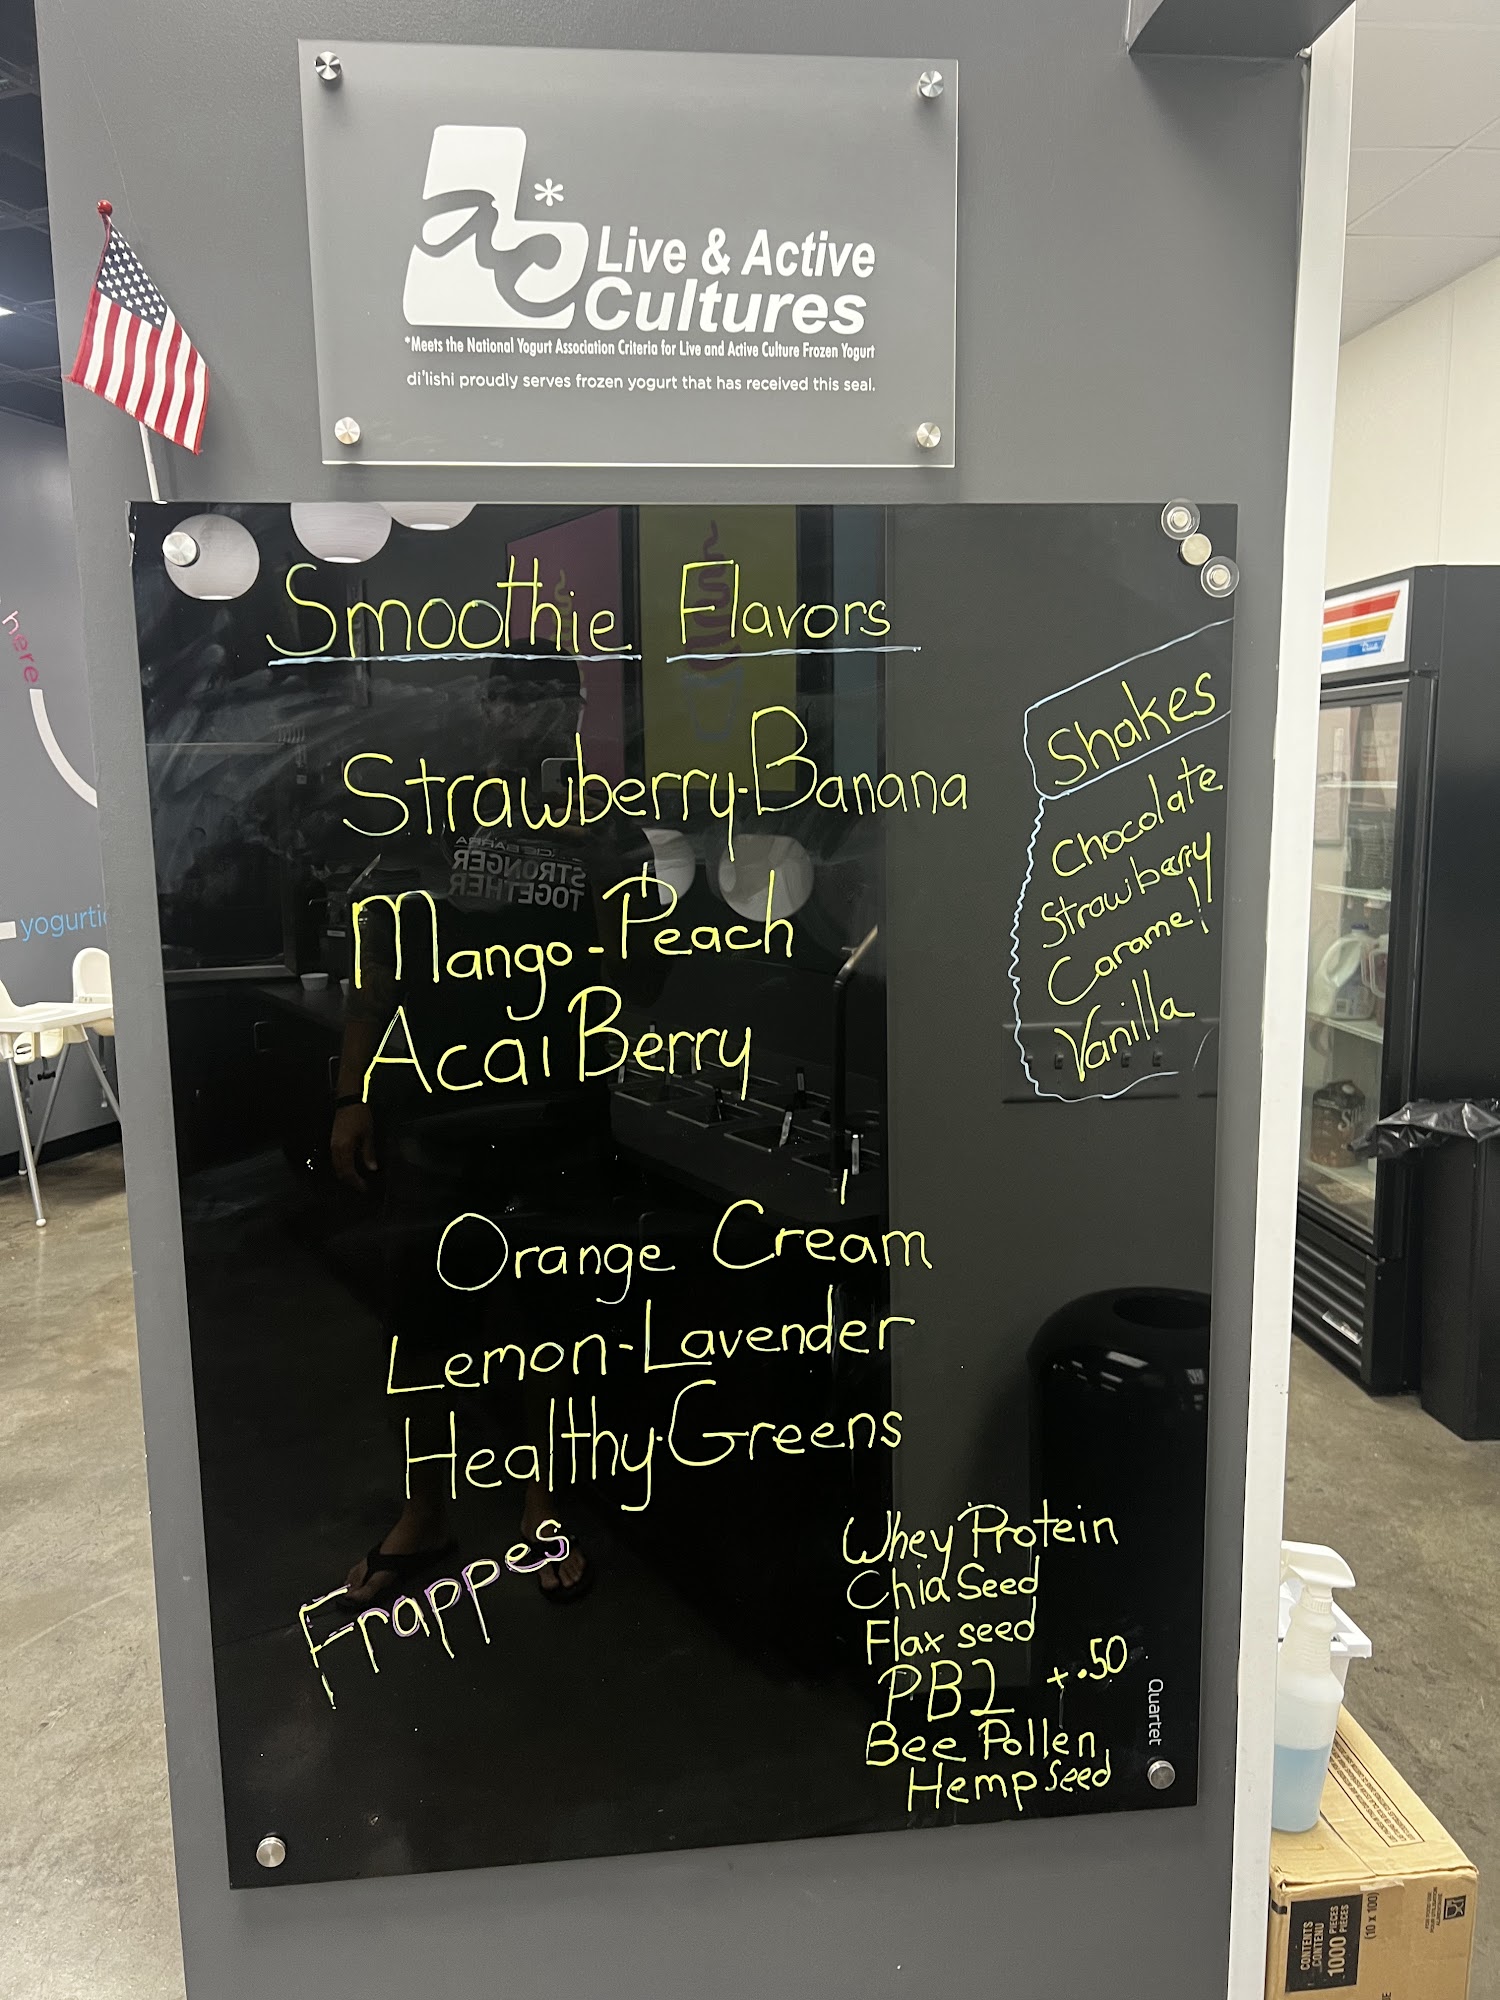 Live & Active
Cultures
*Meets the National Yogurt Association Criteria for Live and Active Culture Frozen Yogurt
di'lishi proudly serves frozen yogurt that has received this seal.
here
yogurti
Smoothie Flavors
Strawberry-Banana
Mango-Peach
Acai Berry
Orange Cream
Lemon-Lavender
Healthy-Greens
Frappes
Shakes
Chocolate
Strawberry
Caramel!
Vanilla
Whey Protein
Chia Seed
Flax seed
PB2 +.50
Bee Pollen
Hemp Seed
Quartet
STRONGER
TOGETHER
CONTENTS
CONTENU
1000 PIECES
PIÈCES
(10 x 100)